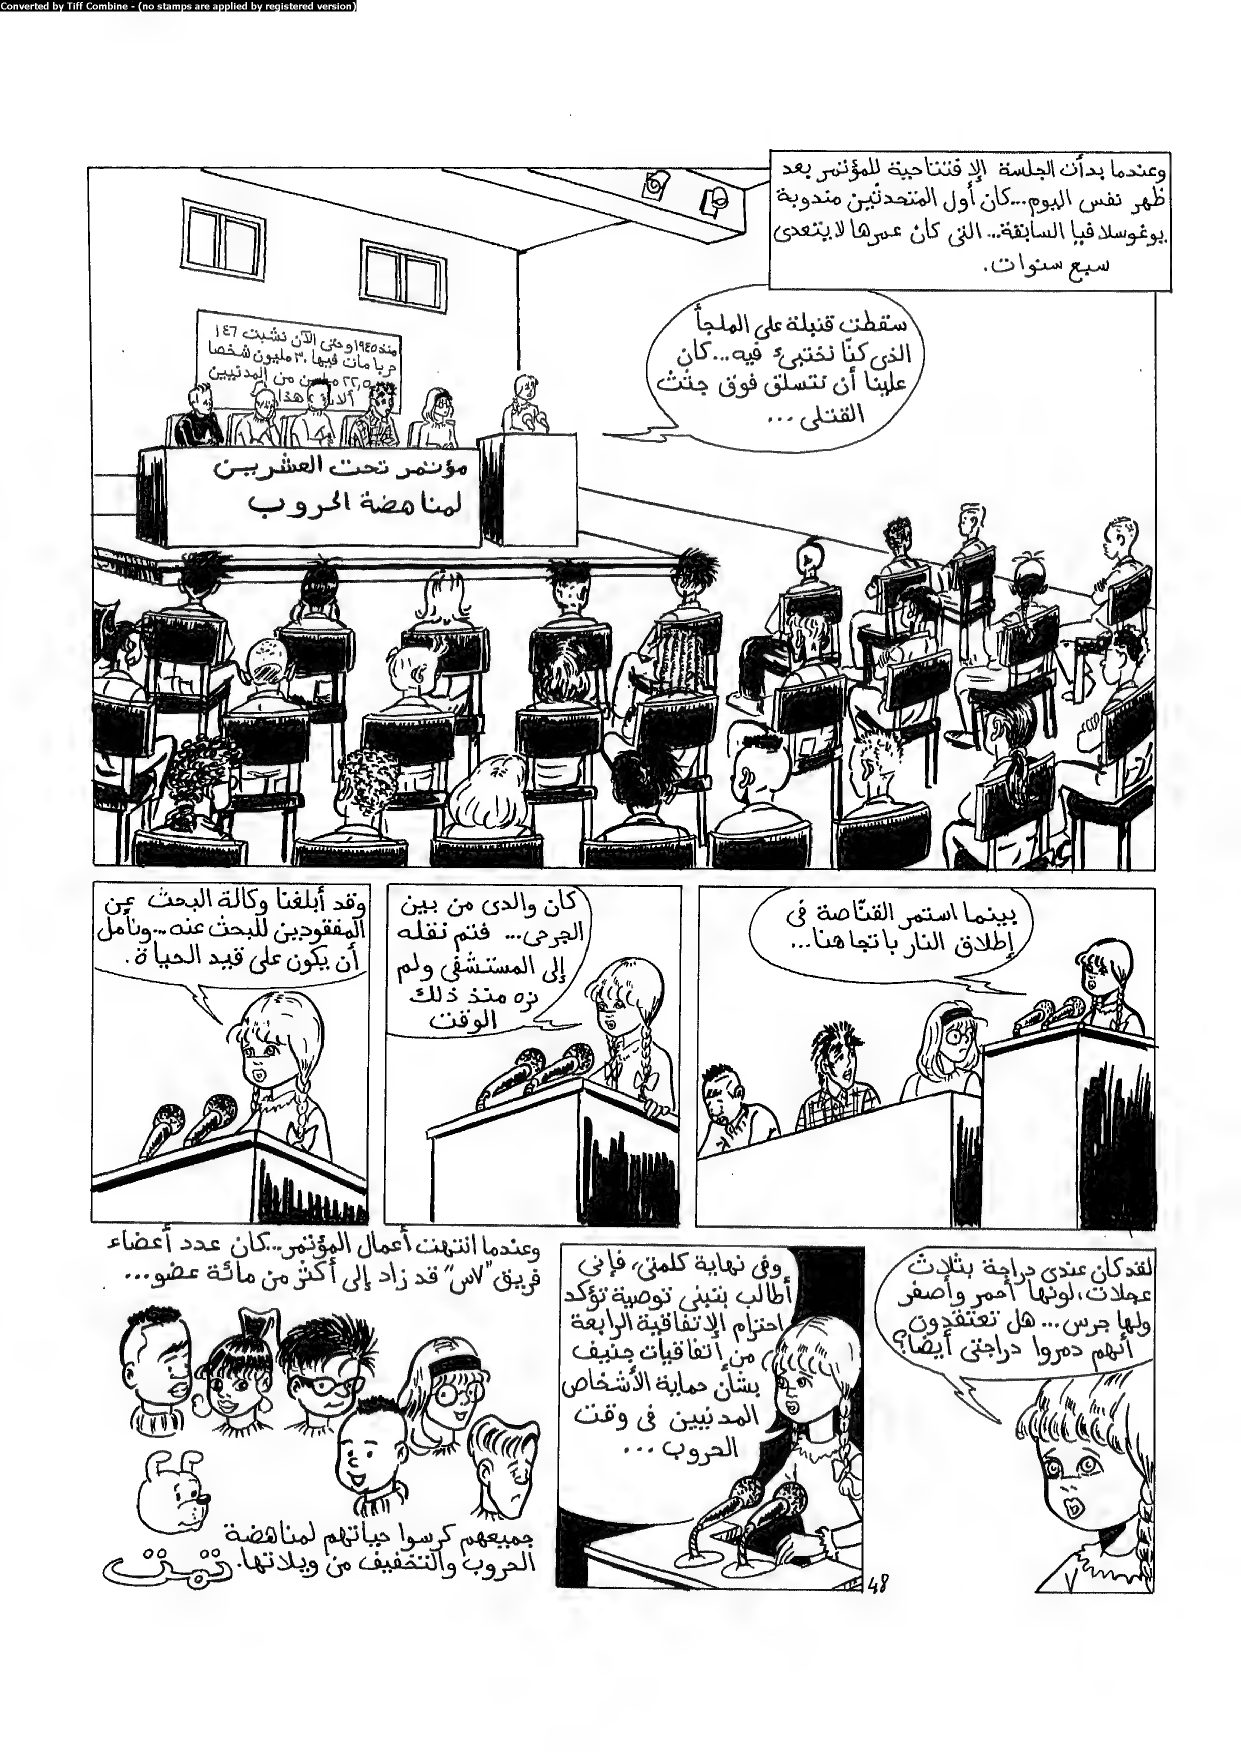 Converted by Tiff Combine - (no stamps are applied by registered version)
وعندما بدأت الجلسة الإفتتاحية للمؤتمر بعد
ظهر نفس اليوم...كان أول المتحدثين مندوبة
يوغوسلافيا السابقة... التى كان عمرها لا يتعدى
سبع سنوات.
سقطت قنبلة على الملجأ
الذى كنّا نختبئ فيه...كان
علينا أن نتسلق فوق جثث
القتلى ...
منذ ١٩٤٥ وحتى الآن نشبت ١٤٦
حربا مات فيها ٣٠ مليون شخصا
من المدنيين
هذا
مؤتمر تحت العشرين
لمناهضة الحروب
بينما استمر القنّاصة فى
إطلاق النار باتجاهنا...
كان والدى من بين
الجرحى... فتم نقله
إلى المستشفى ولم
نره منذ ذلك
الوقت
وقد أبلغنا وكالة البحث عن
المفقودين للبحث عنه...ونأمل
أن يكون على قيد الحياة.
لقد كان عندى دراجة بثلاث
عجلات،لونها أحمر وأصفر
ولها جرس... هل تعتقدون
أنهم دمروا دراجتى أيضا؟
وفى نهاية كلمتى، فإنى
أطالب بتبنى توصية تؤكد
احترام الإتفاقية الرابعة
من إتفاقيات جنيف
بشأن حماية الأشخاص
المدنيين فى وقت
الحروب ...
48
وعندما انتهت أعمال المؤتمر...كان عدد أعضاء
فريق "٧س" قد زاد إلى أكثر من مائة عضو...
جميعهم كرسوا حياتهم لمناهضة
الحروب والتخفيف من ويلاتها.
تمت